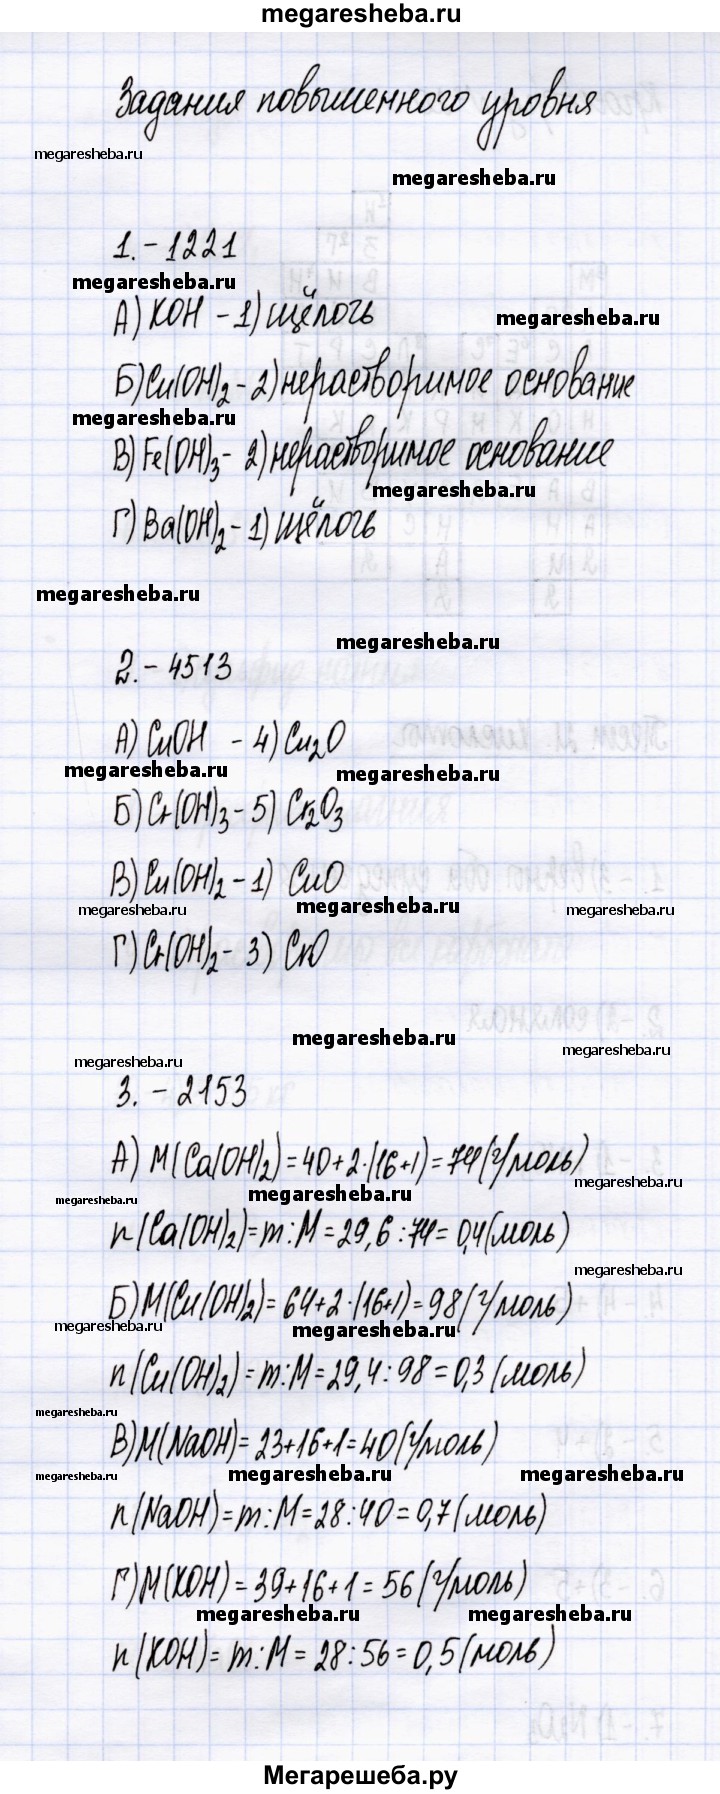 megaresheba.ru
Задания повышенного уровня
megaresheba.ru
megaresheba.ru
1. - 1221
megaresheba.ru
А) KOH - 1) щёлочь
megaresheba.ru
Б) Cu(OH)2 - 2) нерастворимое основание
megaresheba.ru
В) Fe(OH)3 - 2) нерастворимое основание
megaresheba.ru
Г) Ba(OH)2 - 1) щёлочь
megaresheba.ru
megaresheba.ru
2. - 4513
А) CuOH - 4) Cu2O
megaresheba.ru
megaresheba.ru
Б) Cr(OH)3 - 5) Cr2O3
В) Cu(OH)2 - 1) CuO
megaresheba.ru
megaresheba.ru
megaresheba.ru
Г) Cr(OH)2 - 3) CrO
megaresheba.ru
megaresheba.ru
megaresheba.ru
3. - 2153
А) M(Ca(OH)2) = 40+2·(16+1) = 74 (г/моль)
megaresheba.ru
megaresheba.ru
megaresheba.ru
n(Ca(OH)2) = m:M = 29,6:74 = 0,4 (моль)
megaresheba.ru
Б) M(Cu(OH)2) = 64+2·(16+1) = 98 (г/моль)
megaresheba.ru
megaresheba.ru
n(Cu(OH)2) = m:M = 29,4:98 = 0,3 (моль)
megaresheba.ru
В) M(NaOH) = 23+16+1 = 40 (г/моль)
megaresheba.ru
megaresheba.ru
megaresheba.ru
n(NaOH) = m:M = 28:40 = 0,7 (моль)
Г) M(KOH) = 39+16+1 = 56 (г/моль)
megaresheba.ru
megaresheba.ru
n(KOH) = m:M = 28:56 = 0,5 (моль)
Мегарешеба.ру